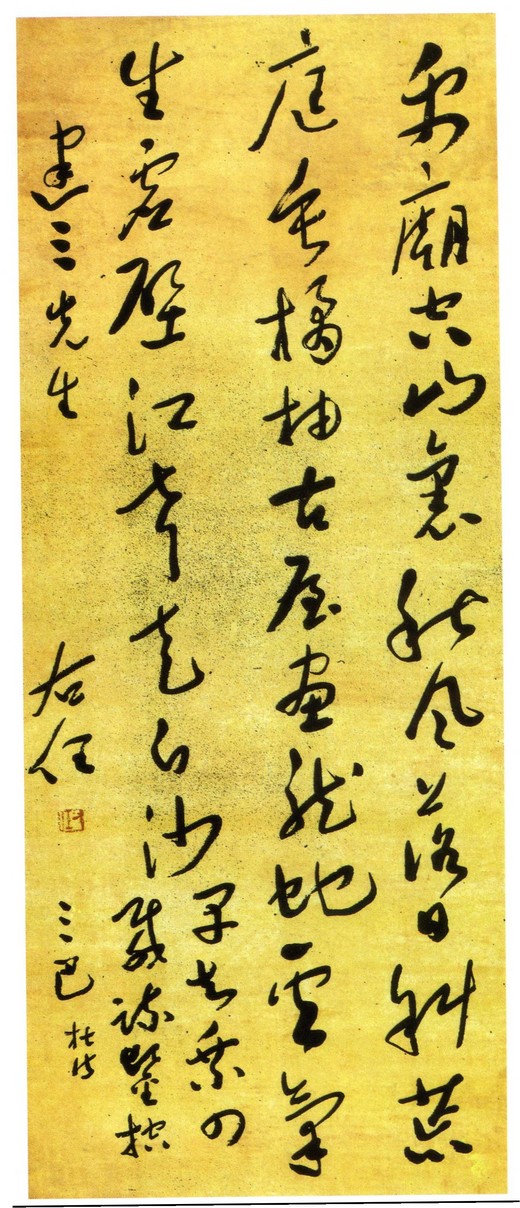 禹廟空山裏秋風落日斜荒
庭垂橘柚古屋畫龍蛇雲氣
生虛壁江聲走白沙
早知乘四
載疏鑿控
三巴 杜詩
三先生
右任